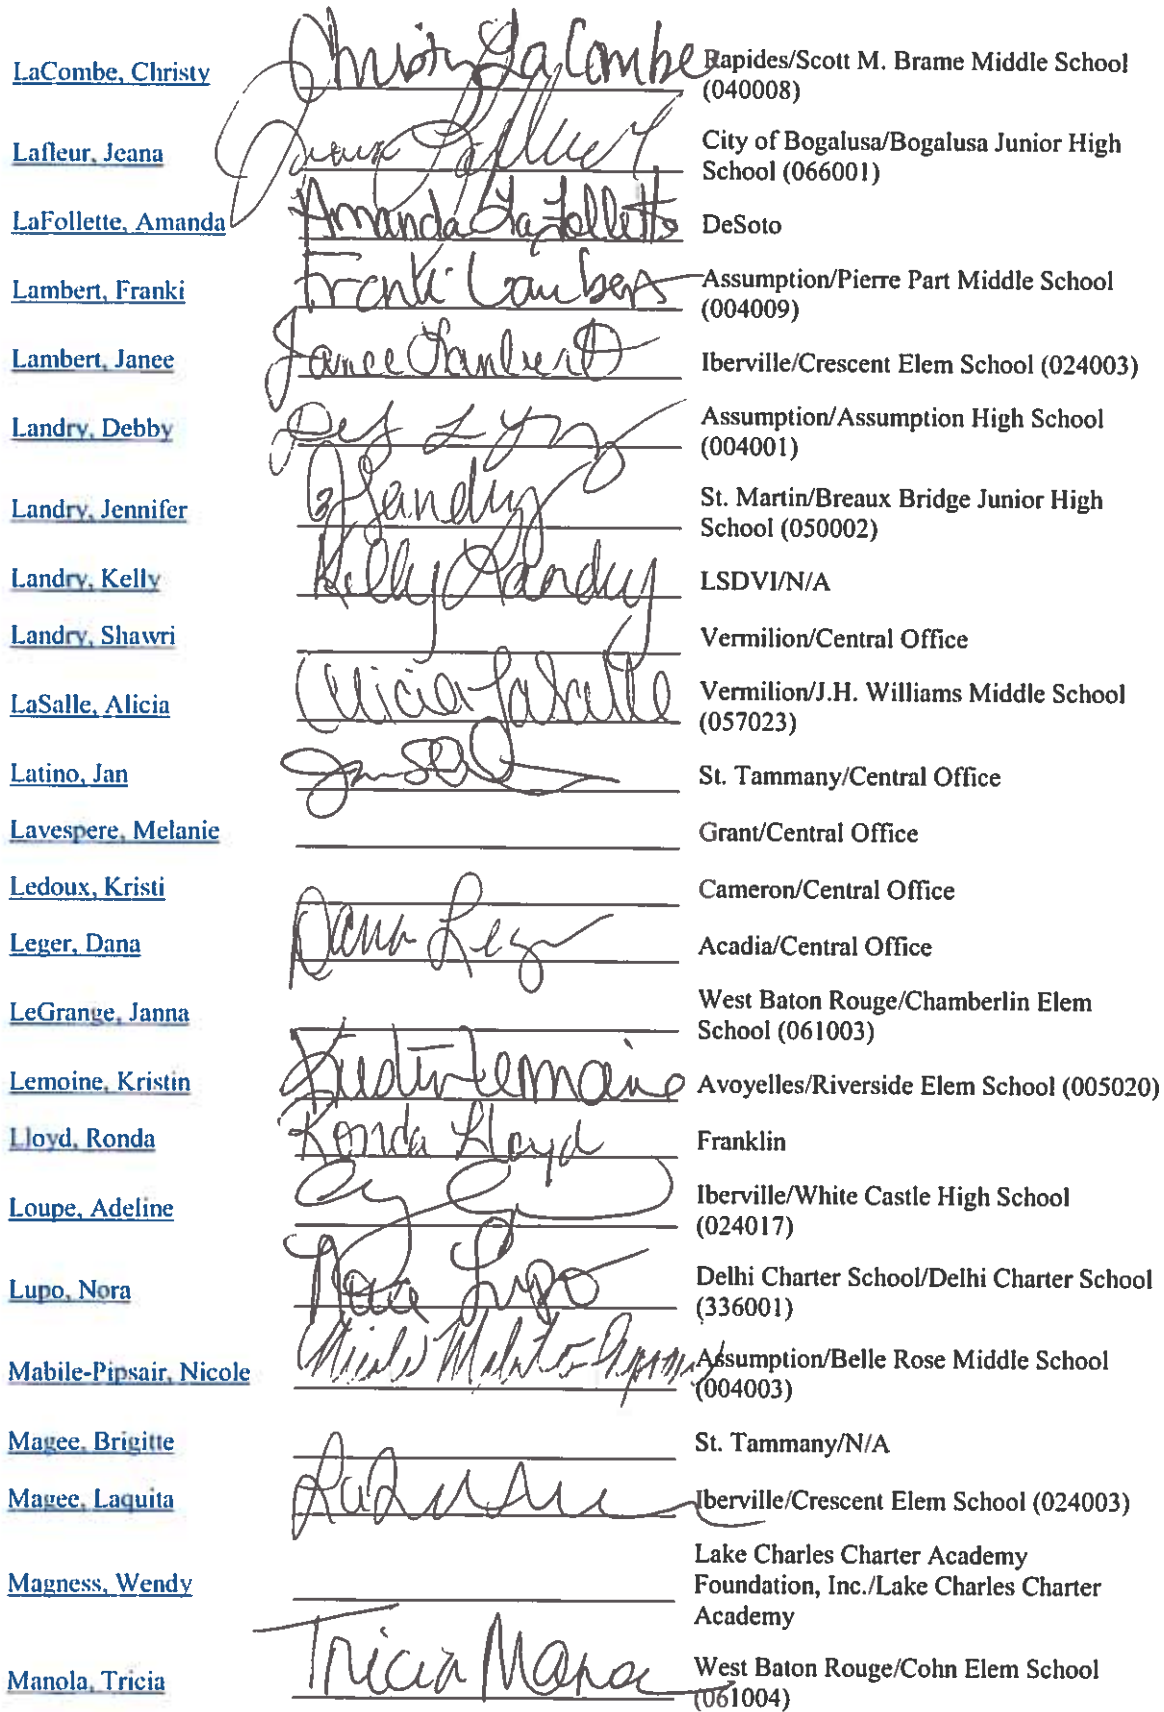 LaCombe, Christy Christy LaCombe Rapides/Scott M. Brame Middle School
(040008)
Lafleur, Jeana Jeana Lafleur City of Bogalusa/Bogalusa Junior High
School (066001)
LaFollette, Amanda Amanda LaFollette DeSoto
Lambert, Franki Franki Lambert Assumption/Pierre Part Middle School
(004009)
Lambert, Janee Janee Lambert Iberville/Crescent Elem School (024003)
Landry, Debby Assumption/Assumption High School
(004001)
Landry, Jennifer J Landry St. Martin/Breaux Bridge Junior High
School (050002)
Landry, Kelly Kelly Landry LSDVI/N/A
Landry, Shawri Vermilion/Central Office
LaSalle, Alicia Alicia LaSalle Vermilion/J.H. Williams Middle School
(057023)
Latino, Jan St. Tammany/Central Office
Lavespere, Melanie Grant/Central Office
Ledoux, Kristi Cameron/Central Office
Leger, Dana Dana Leger Acadia/Central Office
LeGrange, Janna West Baton Rouge/Chamberlin Elem
School (061003)
Lemoine, Kristin Kristin Lemoine Avoyelles/Riverside Elem School (005020)
Lloyd, Ronda Ronda Lloyd Franklin
Loupe, Adeline Iberville/White Castle High School
(024017)
Lupo, Nora Nora Lupo Delhi Charter School/Delhi Charter School
(336001)
Mabile-Pipsair, Nicole Nicole Assumption/Belle Rose Middle School
(004003)
Magee, Brigitte St. Tammany/N/A
Magee, Laquita Iberville/Crescent Elem School (024003)
Magness, Wendy Lake Charles Charter Academy
Foundation, Inc./Lake Charles Charter
Academy
Manola, Tricia Tricia Manola West Baton Rouge/Cohn Elem School
(061004)